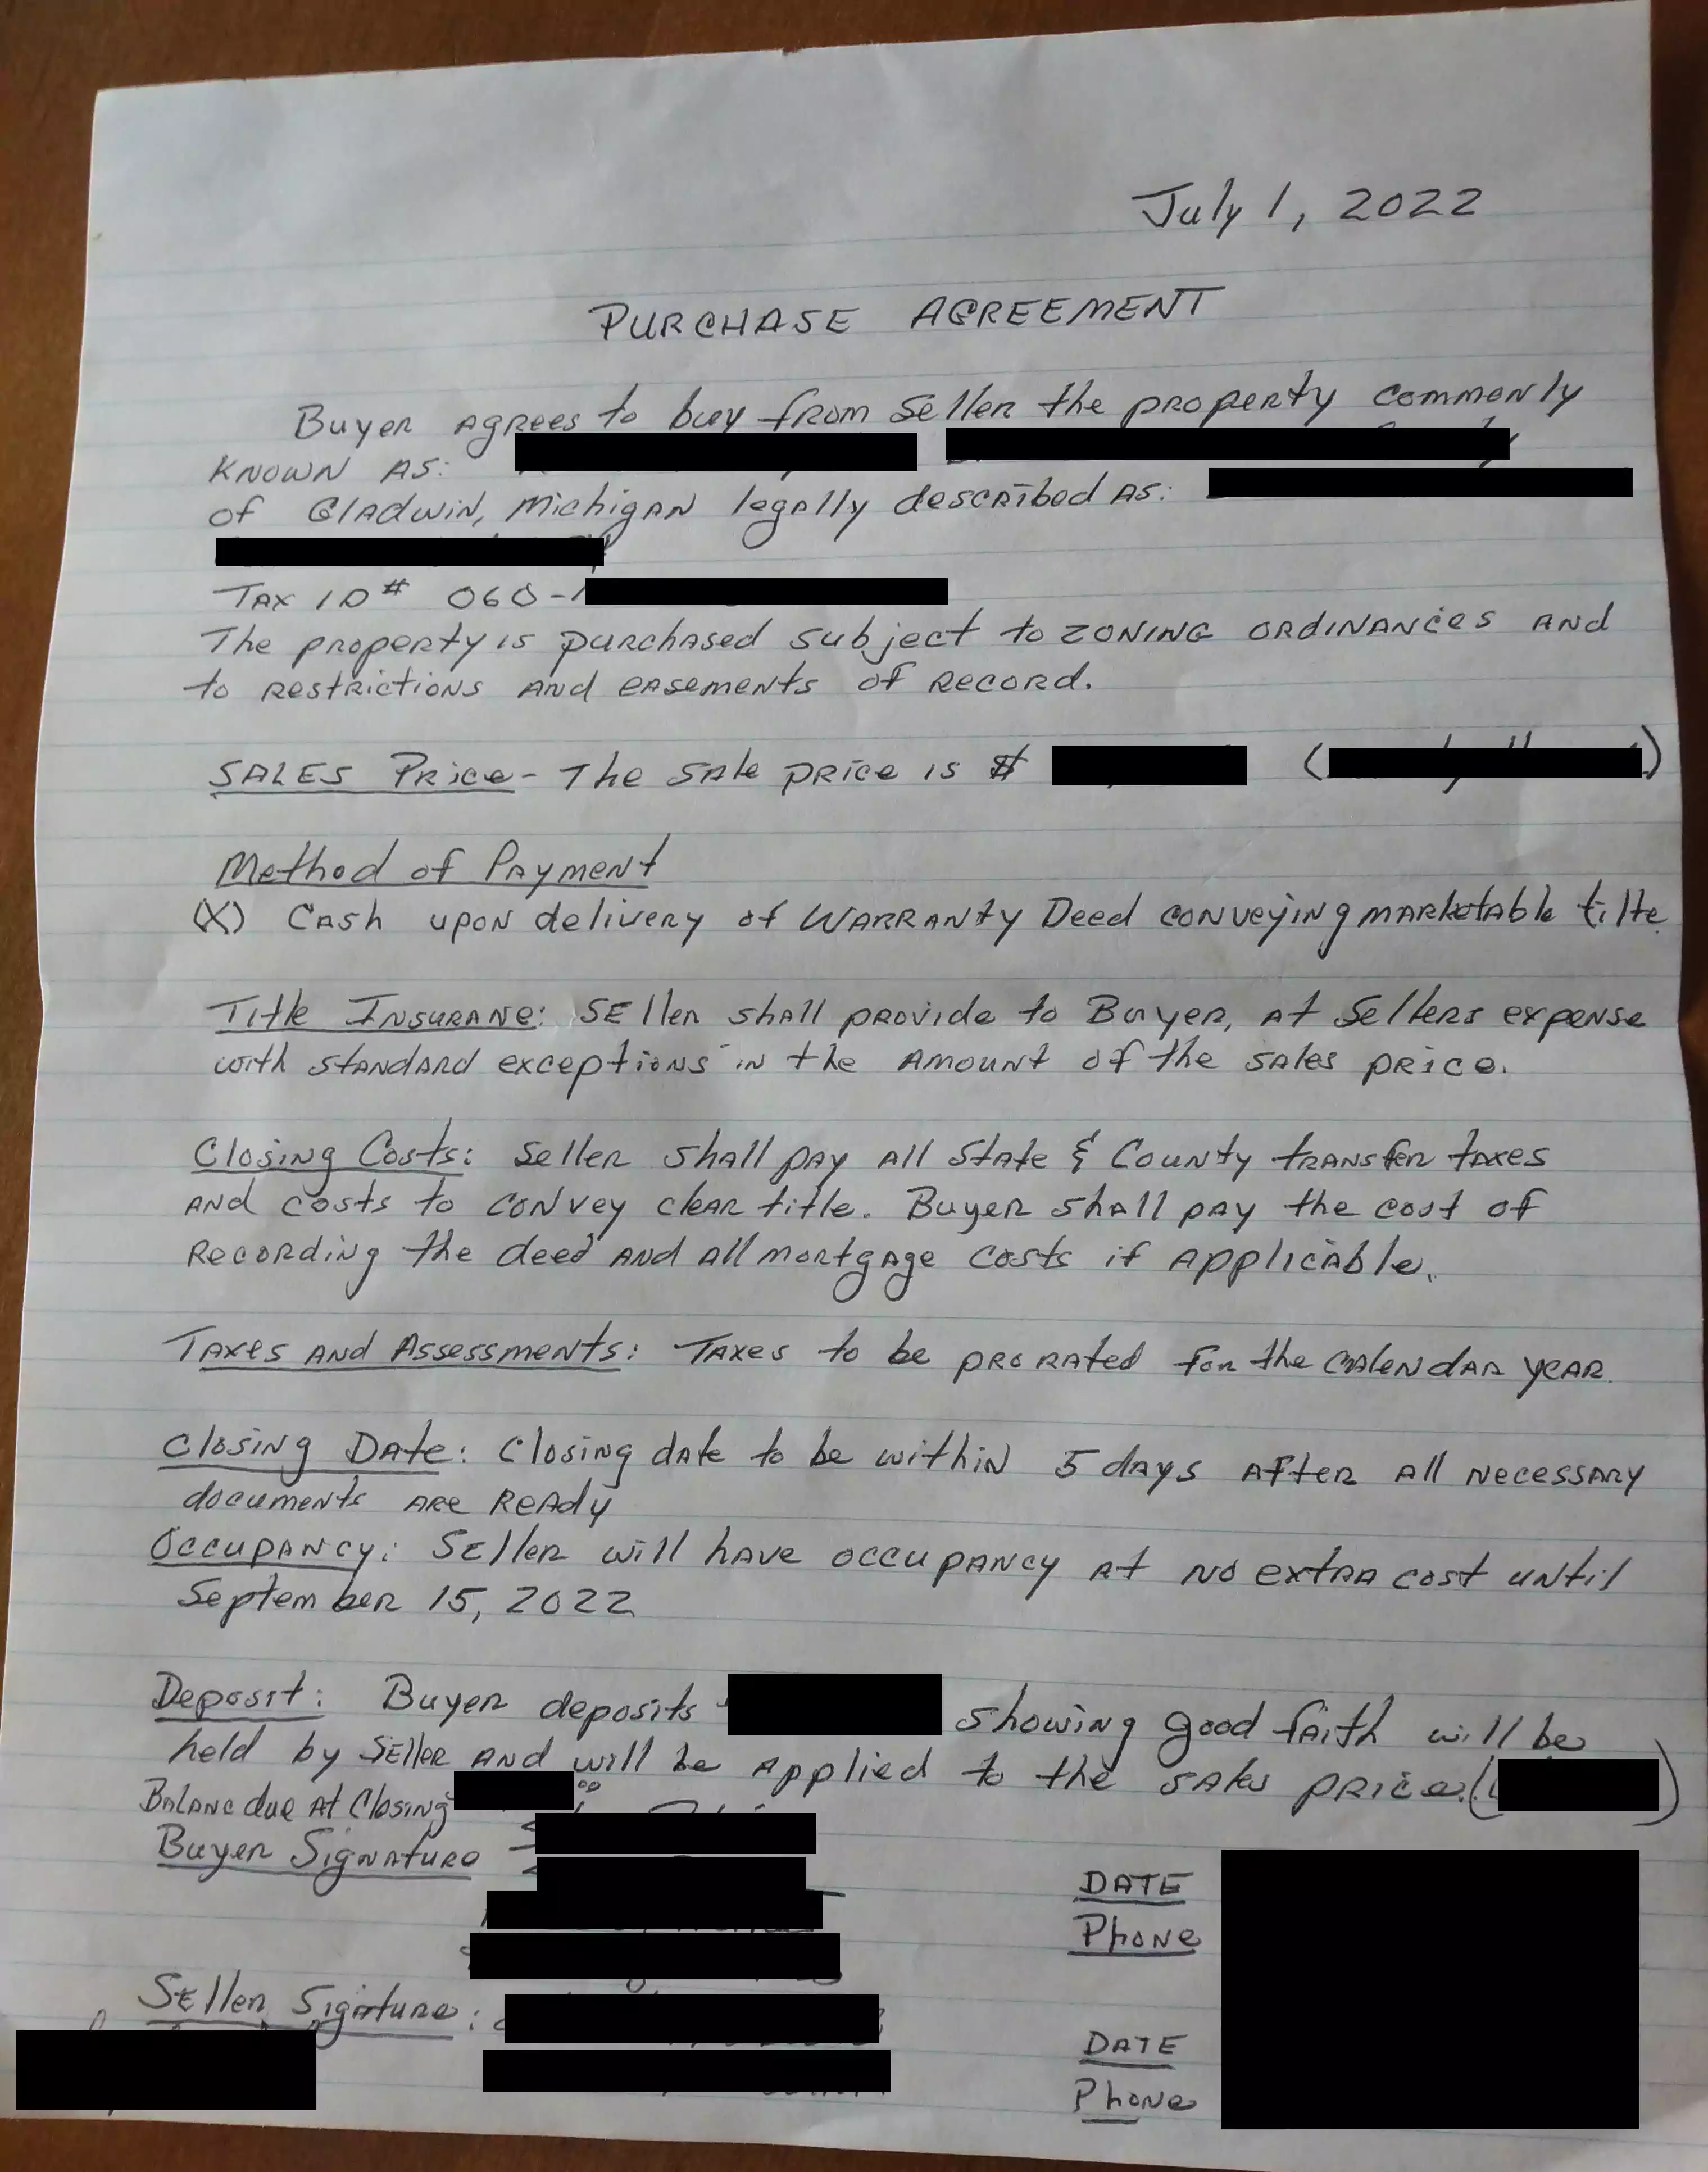 July 1, 2022
PURCHASE AGREEMENT
Buyer agrees to buy from Seller the property commonly
known as:
of Gladwin, Michigan legally described as:
Tax ID# 060-
The property is purchased subject to zoning ordinances and
to restrictions and easements of record.
Sales Price- The sale price is $ ( )
Method of Payment
(X) Cash upon delivery of Warranty Deed conveying marketable tilte
Title Insurane: Seller shall provide to Buyer, at Sellers expense
with standard exceptions in the amount of the sales price.
Closing Costs: Seller shall pay all State & County transfer taxes
and costs to convey clear title. Buyer shall pay the cost of
Recording the deed and all mortgage costs if applicable.
Taxes and Assessments: Taxes to be prorated for the calendar year.
Closing Date: Closing date to be within 5 days after all necessary
documents are ready
Occupancy: Seller will have occupancy at no extra cost until
September 15, 2022
Deposit: Buyer deposits showing good faith will be
held by Seller and will be applied to the sales price. ( )
Balanc due at Closing 00
Buyer Signature
DATE
Phone
Seller Signture:
DATE
Phone